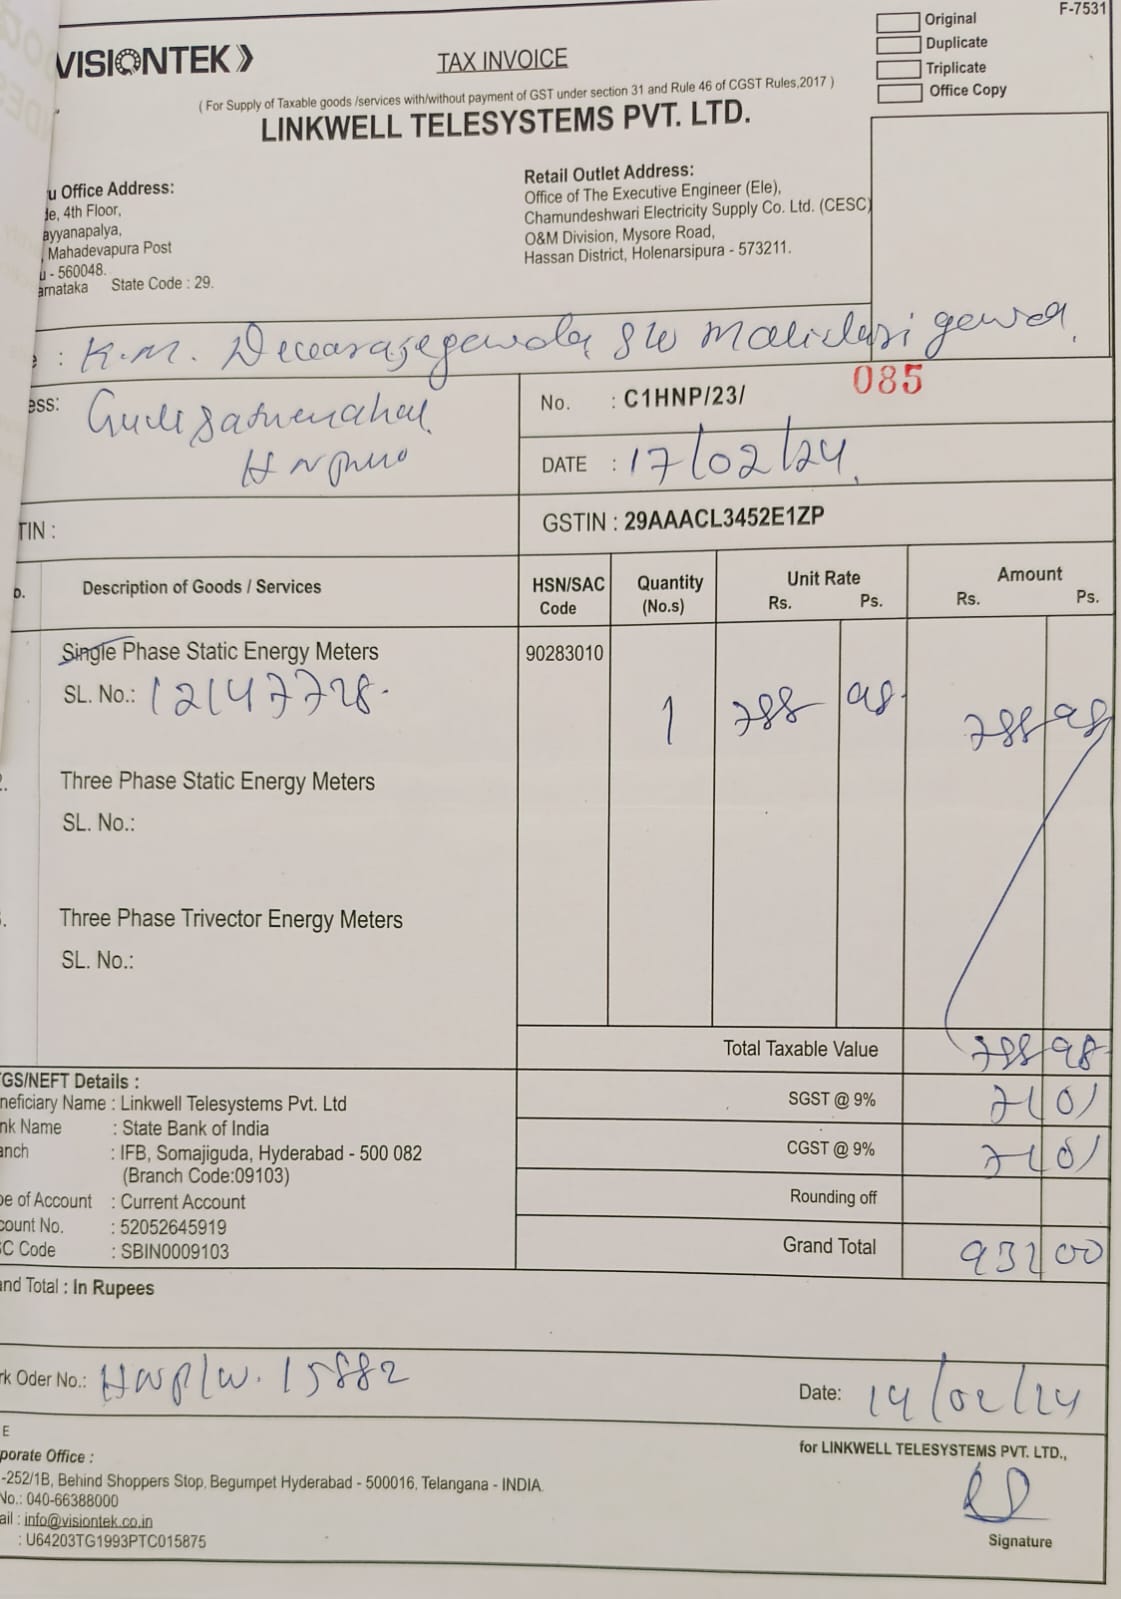 F-7531
Original
Duplicate
Triplicate
Office Copy
VISIONTEK
TAX INVOICE
( For Supply of Taxable goods /services with/without payment of GST under section 31 and Rule 46 of CGST Rules,2017 )
LINKWELL TELESYSTEMS PVT. LTD.
u Office Address:
de, 4th Floor,
ayyanapalya,
Mahadevapura Post
u - 560048.
arnataka State Code : 29.
Retail Outlet Address:
Office of The Executive Engineer (Ele),
Chamundeshwari Electricity Supply Co. Ltd. (CESC)
O&M Division, Mysore Road,
Hassan District, Holenarsipura - 573211.
: K.M.
ess:
No. : C1HNP/23/ 085
DATE : 17/02/24
TIN :
GSTIN : 29AAACL3452E1ZP
Description of Goods / Services HSN/SAC Code Quantity (No.s) Unit Rate Rs. Ps. Amount Rs. Ps.
Single Phase Static Energy Meters 90283010
SL. No.: 12147728. 1 788 98. 788 98
Three Phase Static Energy Meters
SL. No.:
Three Phase Trivector Energy Meters
SL. No.:
Total Taxable Value 788 98
SGST @ 9% 71 01
CGST @ 9% 71 01
Rounding off
Grand Total 931 00
GS/NEFT Details :
neficiary Name : Linkwell Telesystems Pvt. Ltd
nk Name : State Bank of India
anch : IFB, Somajiguda, Hyderabad - 500 082
(Branch Code:09103)
pe of Account : Current Account
count No. : 52052645919
C Code : SBIN0009103
and Total : In Rupees
rk Oder No.: HNP/W. 15882
Date: 14/02/24
E
porate Office :
-252/1B, Behind Shoppers Stop, Begumpet Hyderabad - 500016, Telangana - INDIA.
No.: 040-66388000
ail : info@visiontek.co.in
: U64203TG1993PTC015875
for LINKWELL TELESYSTEMS PVT. LTD.,
Signature